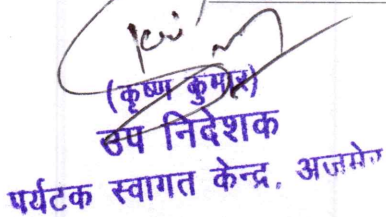 (कृष्ण कुमार)
उप निदेशक
पर्यटक स्वागत केन्द्र, अजमेर